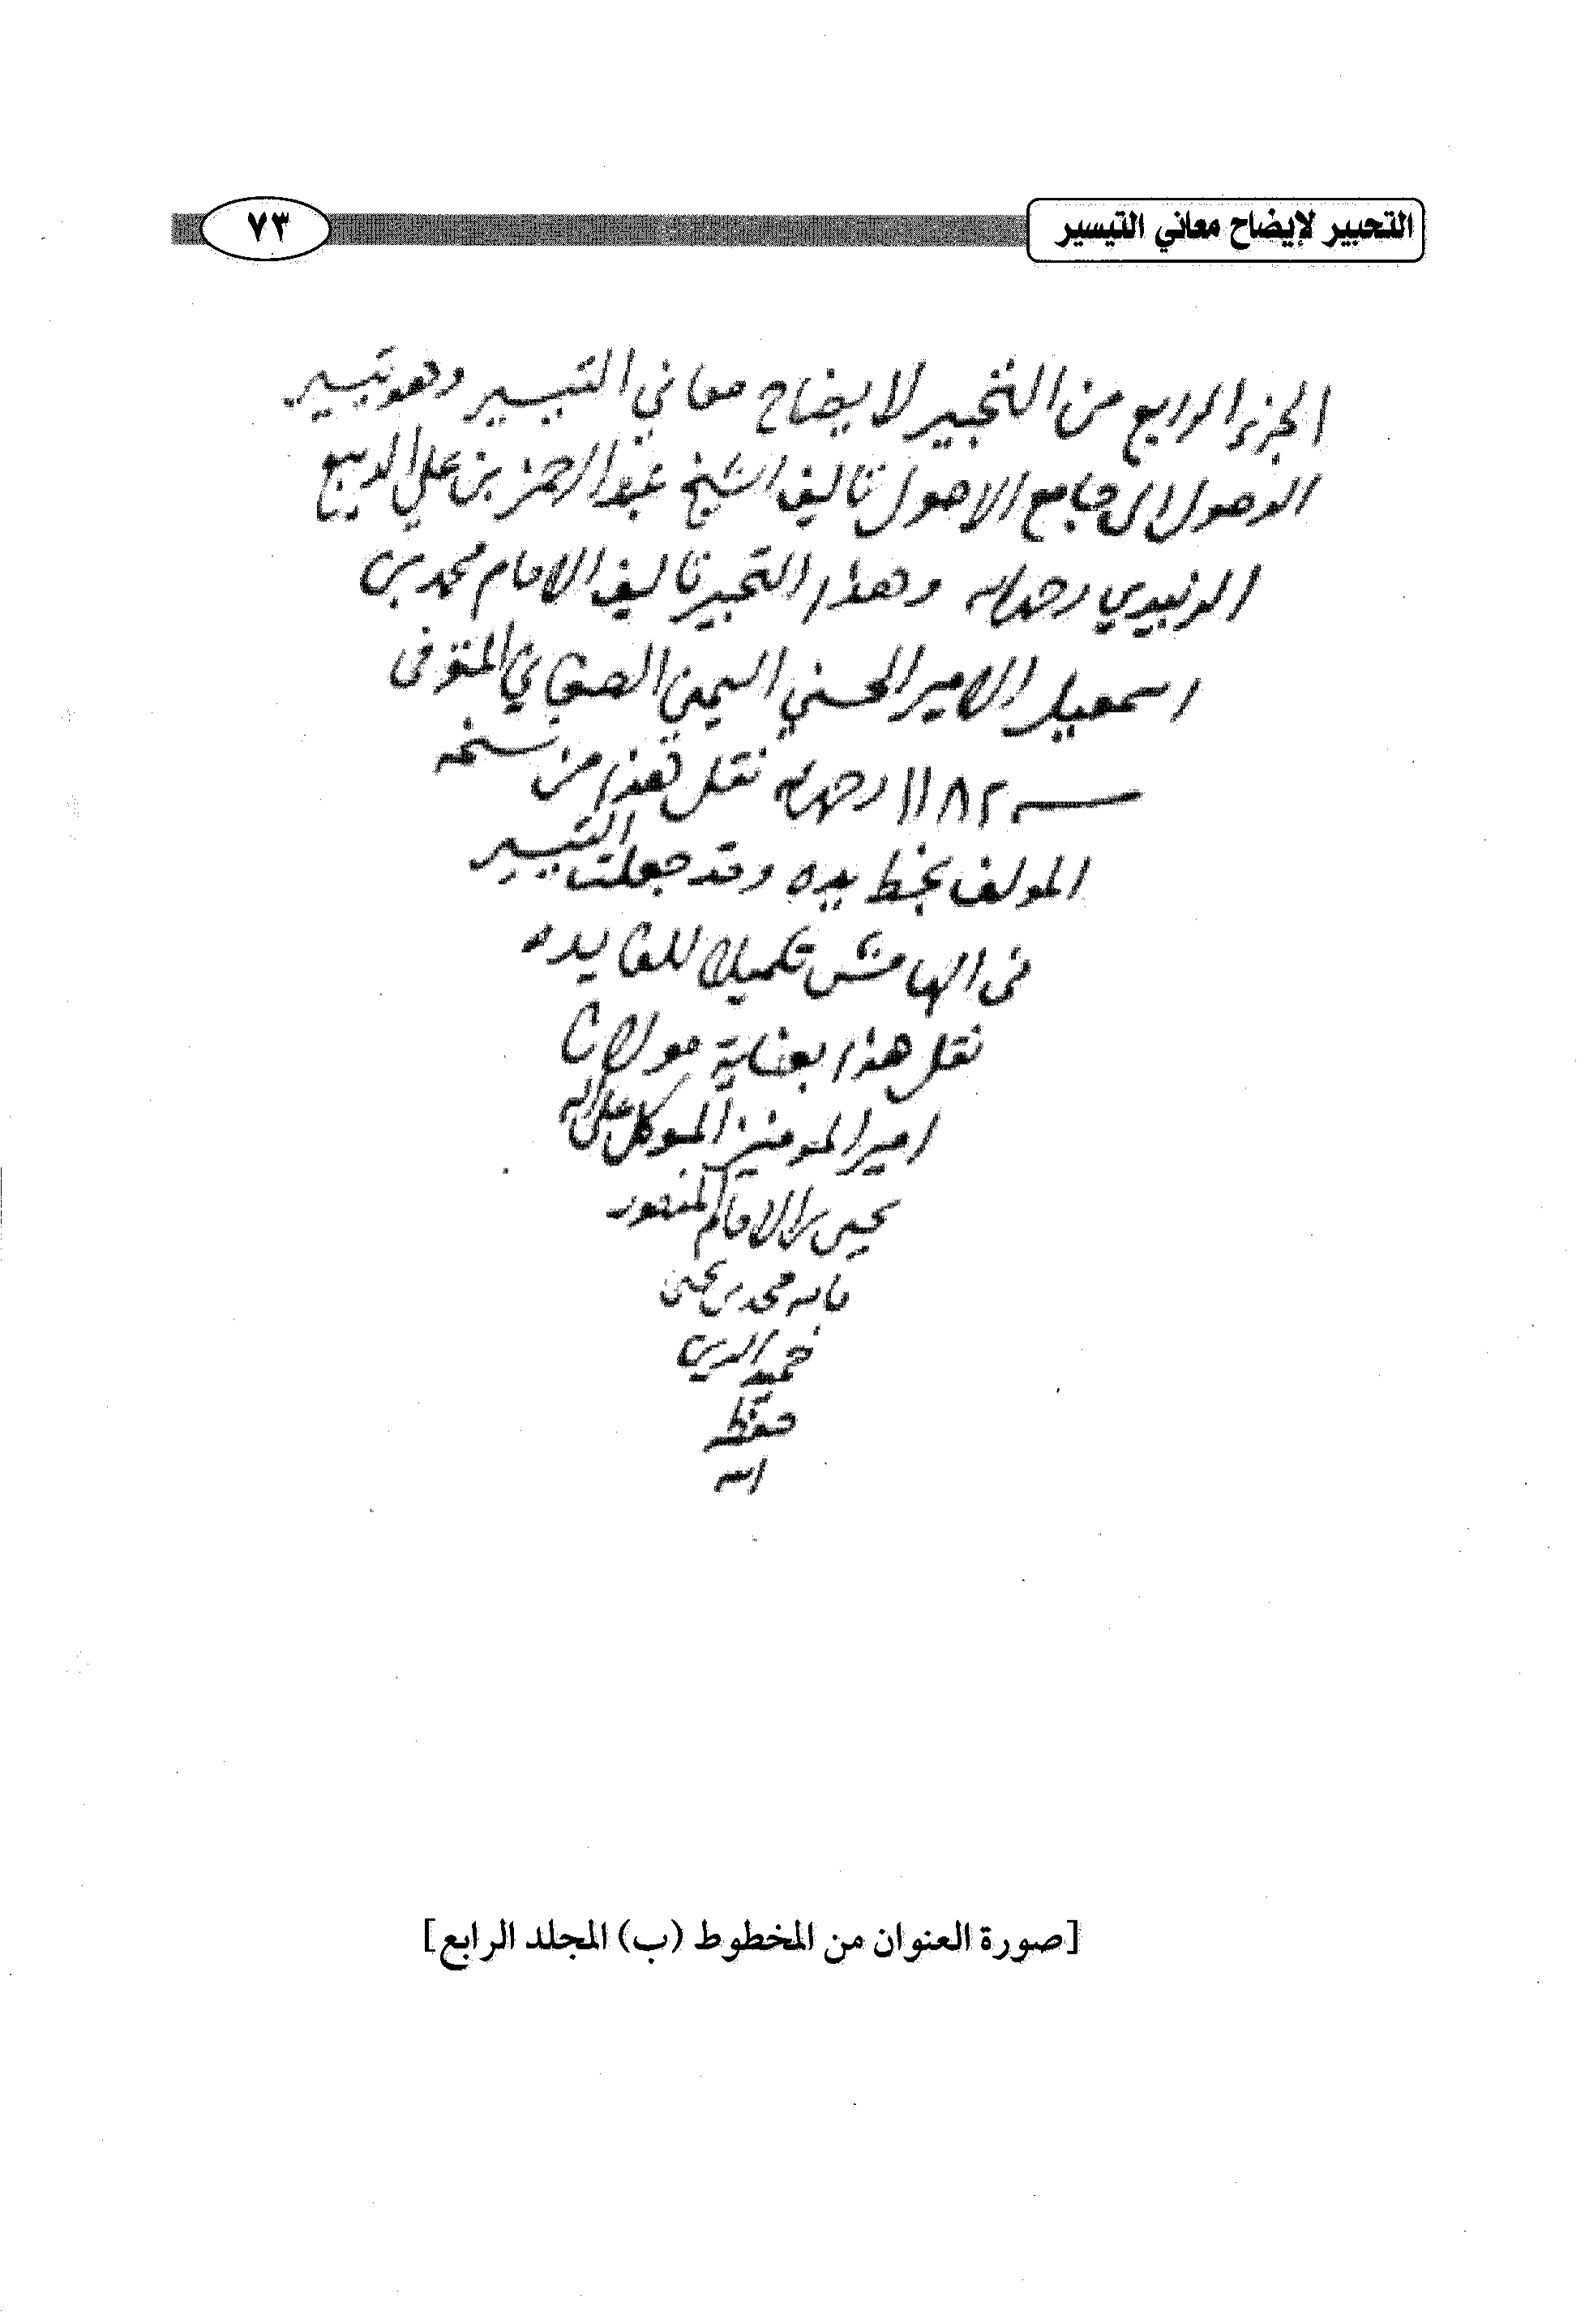 التحبير لإيضاح معاني التيسير
٧٣
الجزء الرابع من التحبير لايضاح معاني التيسير وهو تيسير
الوصول الى جامع الاصول تاليف الشيخ عبد الرحمن بن علي الديبع
الزبيدي رحمه الله وهذا التحبير تاليف الامام محمد بن
اسمعيل الامير الحسني اليمني الصنعاني المتوفى
سنه ١١٨٢ رحمه الله نقل هذا من نسخه
المولف بخط يده وقد جعلت التيسير
في الهامش تكميلا للفايده
نقل هذا بعناية مولانا
امير المومنين المتوكل على الله
يحيى بن الامام المنصور
بالله محمد بن يحيى
حميد الدين
حفظه
الله
[صورة العنوان من المخطوط (ب) المجلد الرابع]